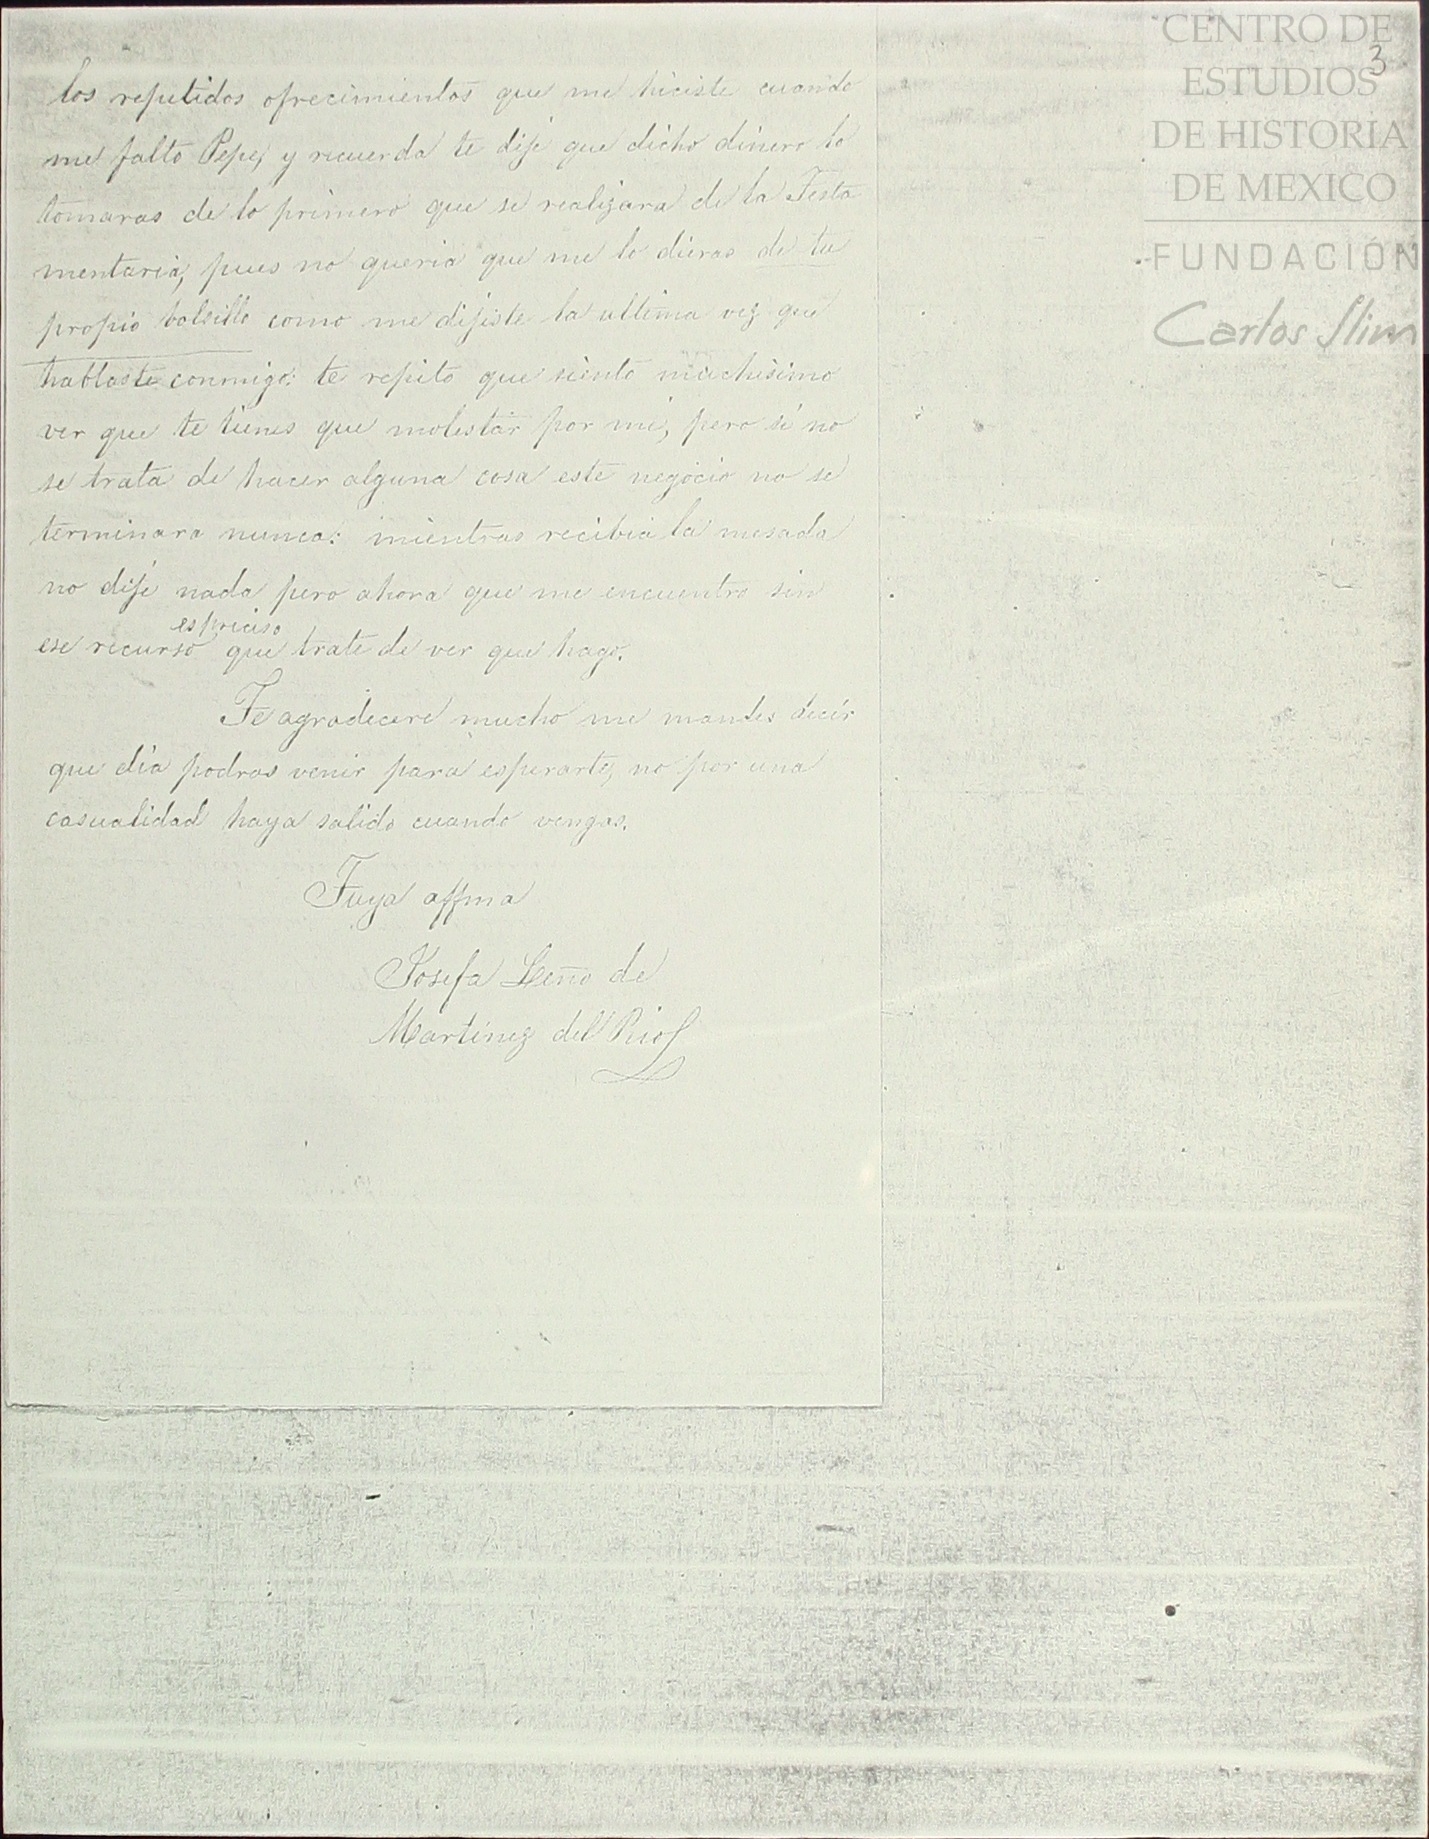 CENTRO DE
ESTUDIOS
DE HISTORIA
DE MEXICO
FUNDACIÓN
Carlos Slim
3
los repetidos ofrecimientos que me hiciste cuando
me falto Pepe, y recuerda te dije que dicho dinero lo
tomaras de lo primero que se realizara de la Testa
mentaria, pues no queria que me lo dieras de tu
propio bolsillo como me dijiste la ultima vez que
hablaste conmigo: te repito que siento muchisimo
ver que te tienes que molestar por mi, pero si no
se trata de hacer alguna cosa este negocio no se
terminara nunca: mientras recibia la mesada
no dije nada pero ahora que me encuentro sin
es preciso
ese recurso que trate de ver que hago.
Te agradecere mucho me mandes decir
que dia podras venir para esperarte, no por una
casualidad haya salido cuando vengas.
Tuya affma
Josefa Leño de
Martinez del Rio